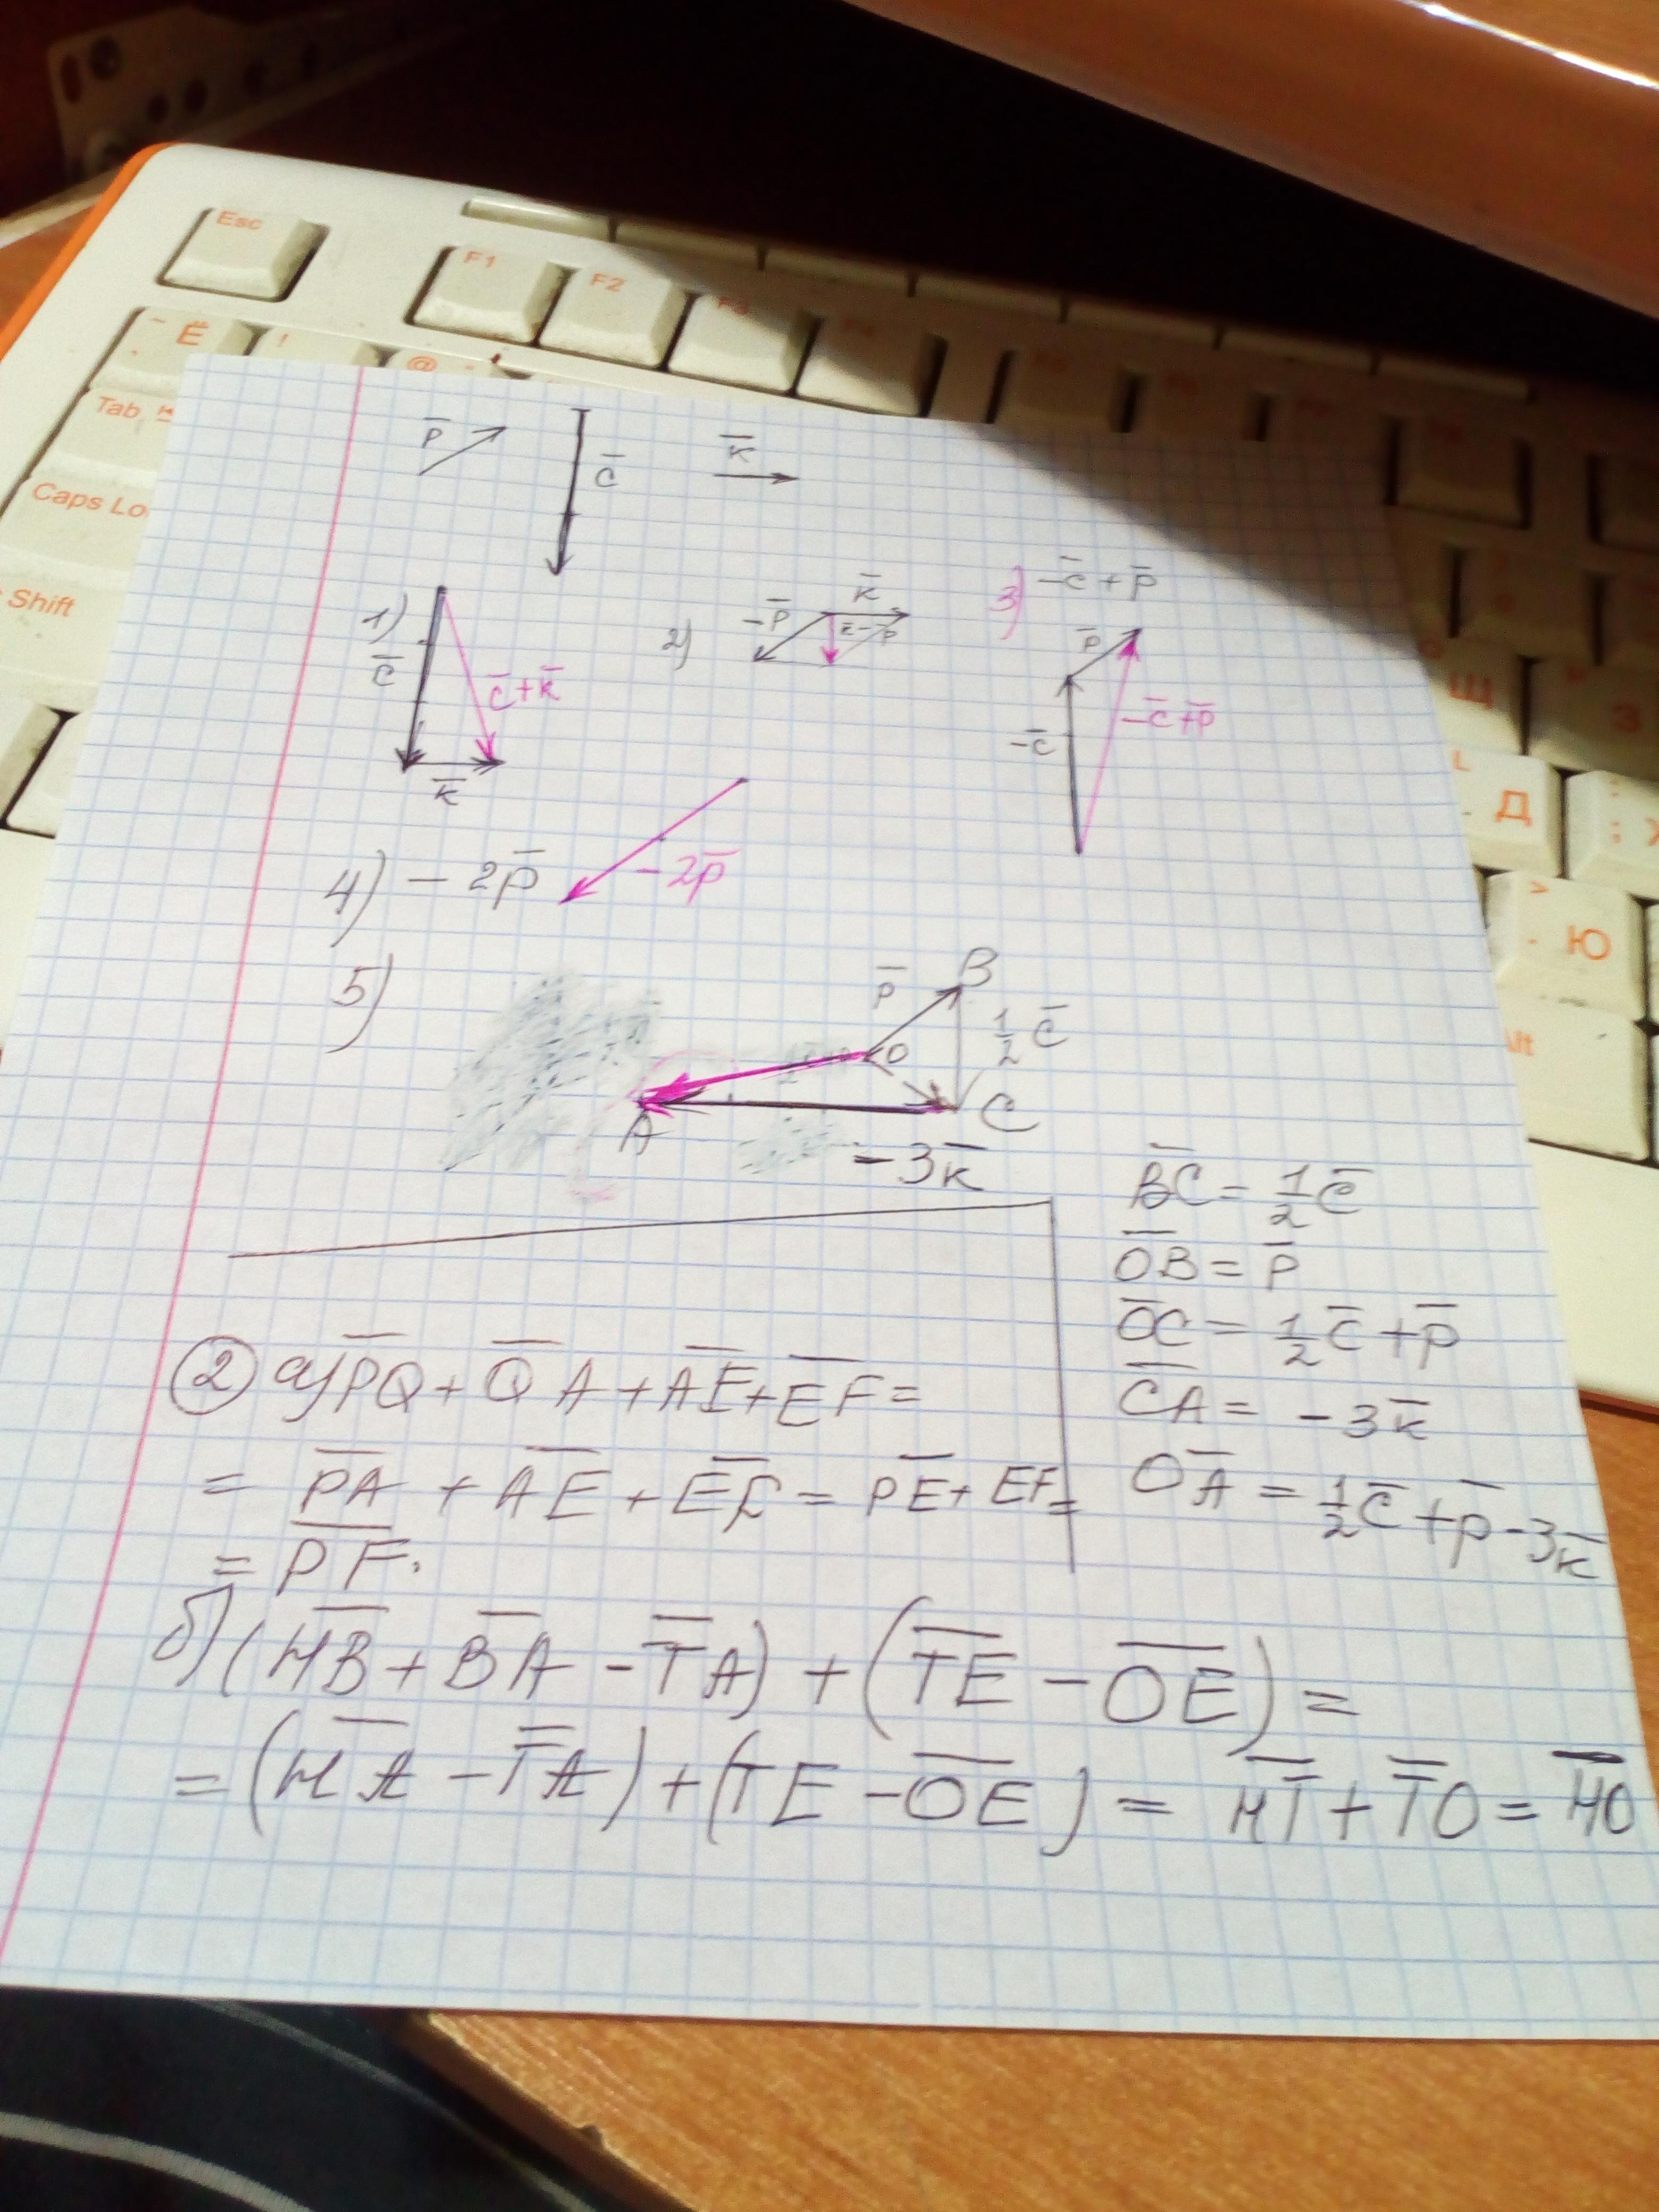 Esc
F1
F2
F3
Ё
!
@
Tab
Caps Lo
Shift
Щ
З
L
Д
Ю
Alt
p̅
c̅
k̅
1)
c̅
c̅+k̅
k̅
2)
-p̅
k̅
k̅-p̅
3) -c̅+p̅
p̅
-c̅
-c̅+p̅
4) -2p̅
-2p̅
5)
p̅
B
O
1/2 c̅
A
C
-3k̅
B̅C̅ = 1/2 c̅
O̅B̅ = p̅
O̅C̅ = 1/2 c̅ + p̅
C̅A̅ = -3k̅
O̅A̅ = 1/2 c̅ + p̅ - 3k̅
② a) P̅Q̅ + Q̅A̅ + A̅E̅ + E̅F̅ =
= P̅A̅ + A̅E̅ + E̅F̅ = P̅E̅ + EF =
= P̅F̅.
б) (H̅B̅ + B̅A̅ - T̅A̅) + (T̅E̅ - O̅E̅) =
= (H̅A̅ - T̅A̅) + (TE - O̅E̅) = H̅T̅ + T̅O̅ = H̅O̅